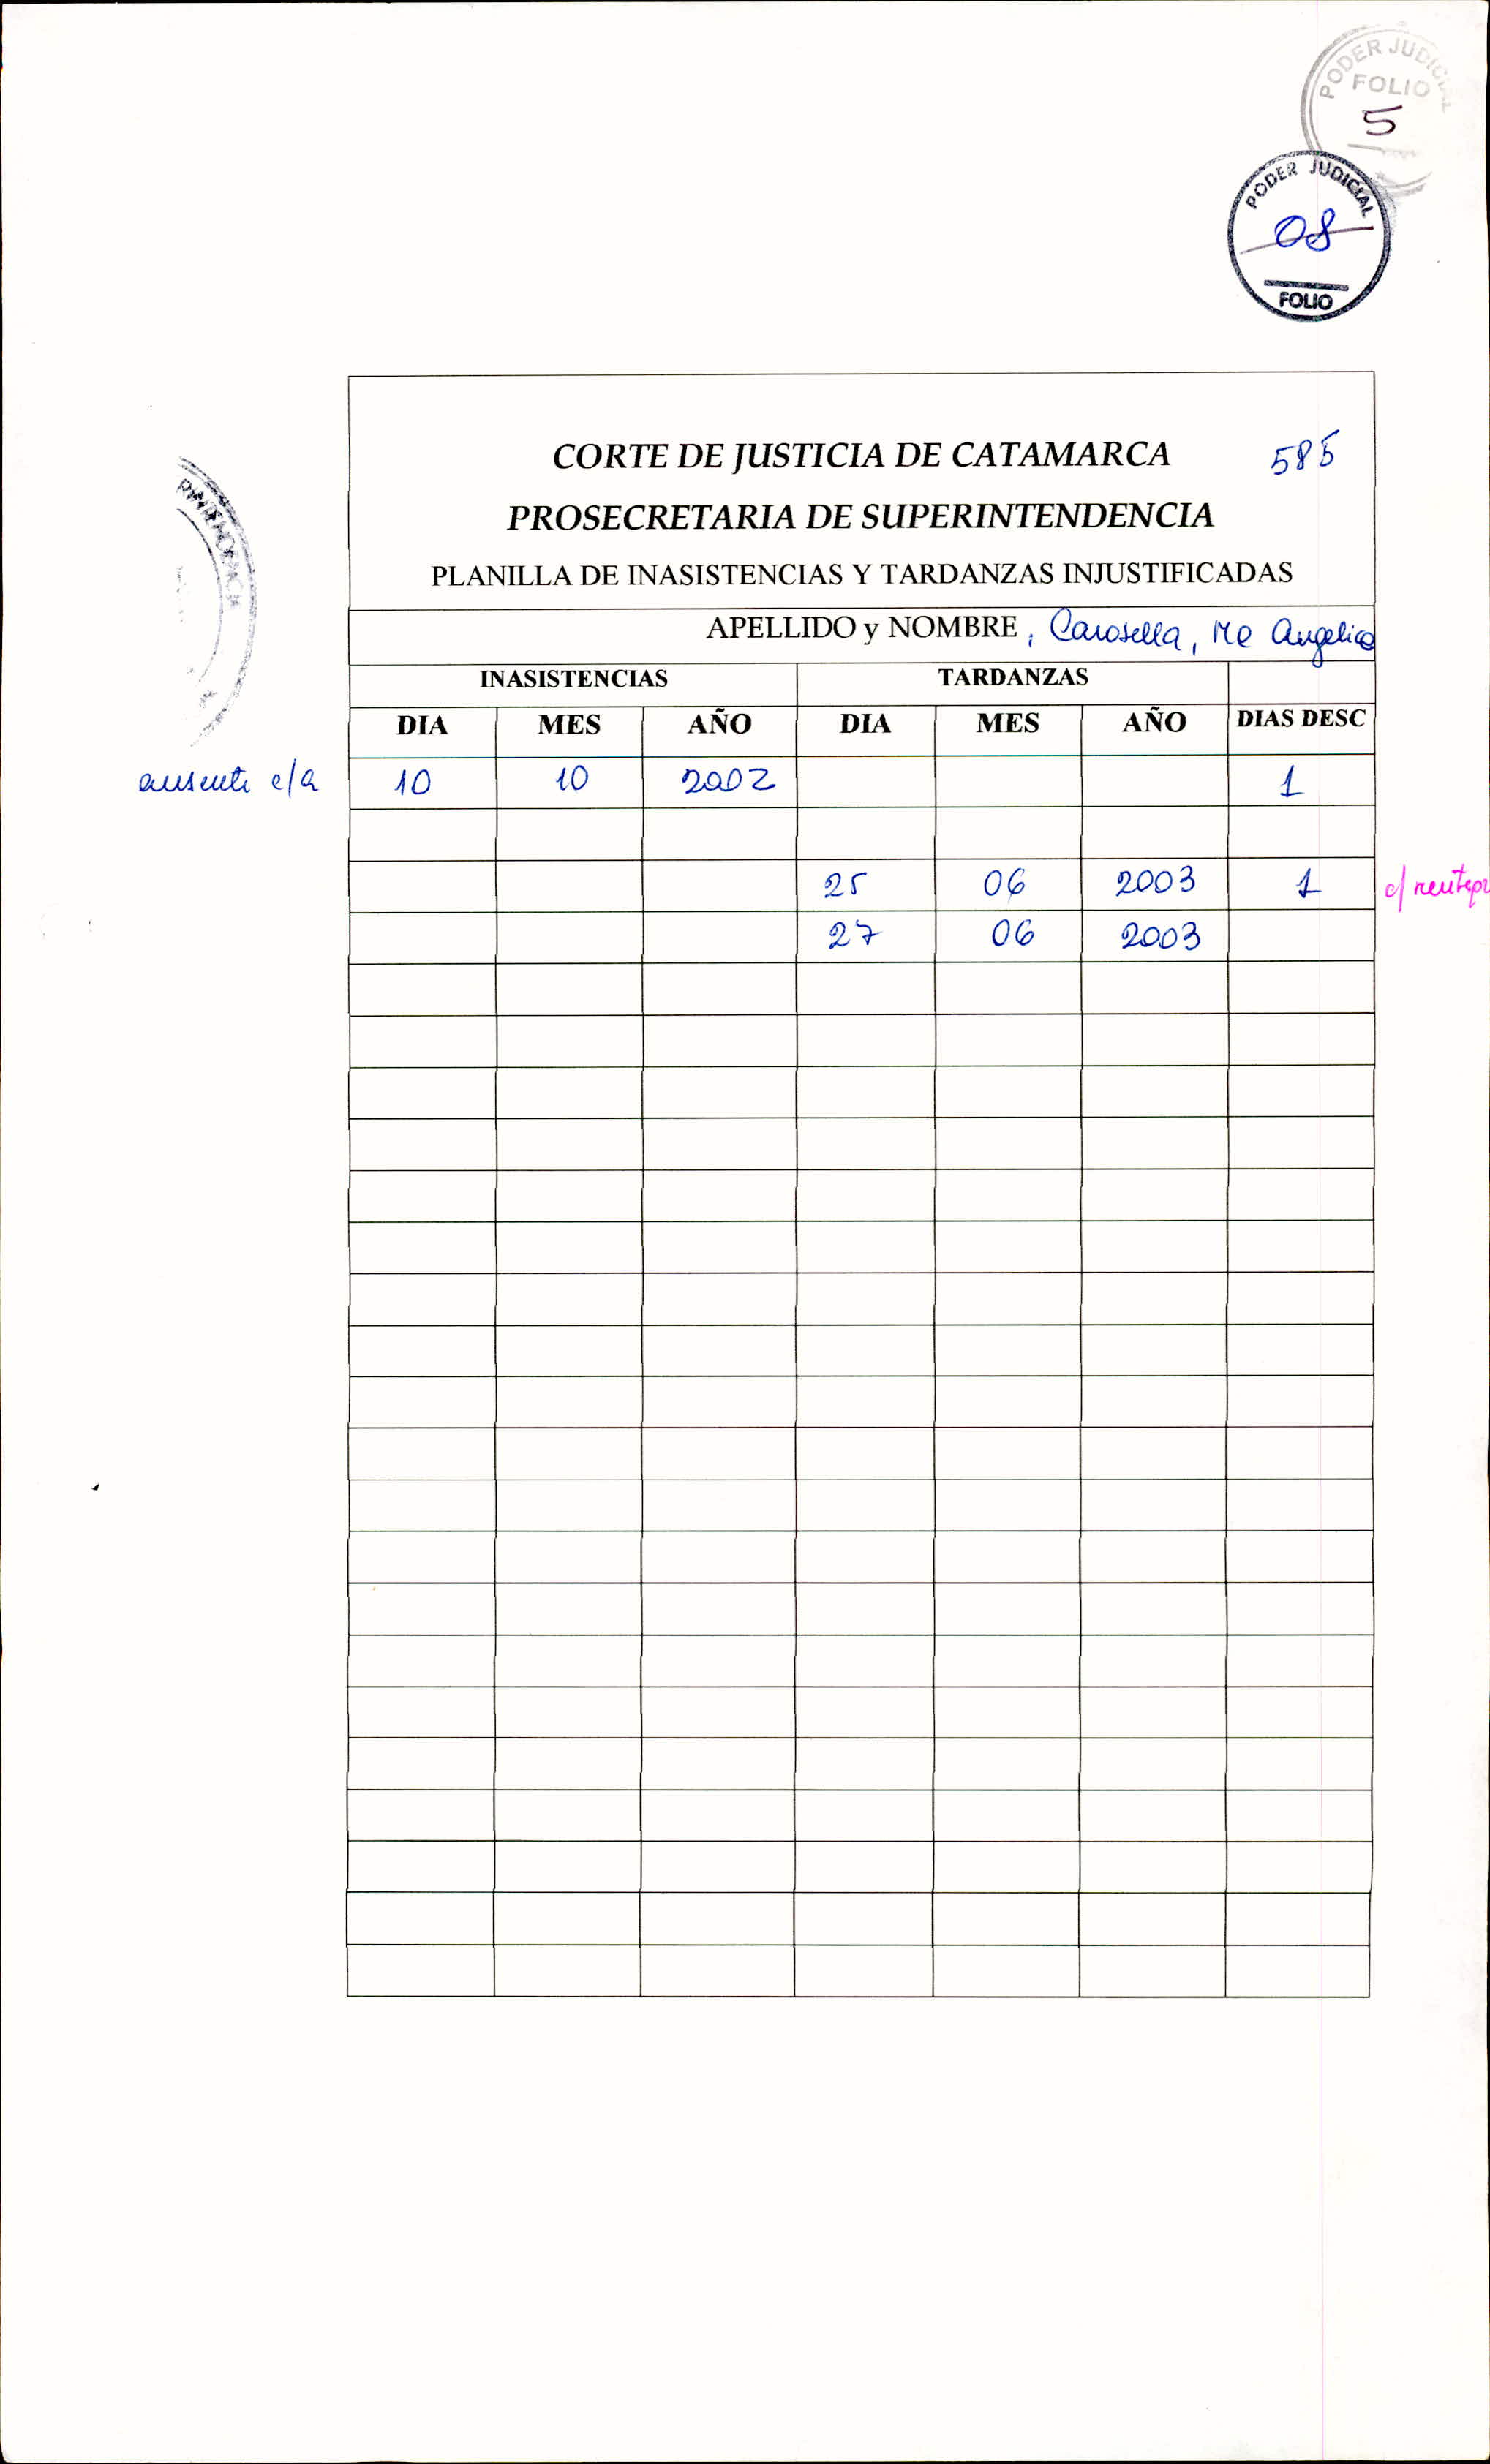 PODER JUDICIAL
FOLIO
5
PODER JUDICIAL
08
FOLIO
CORTE DE JUSTICIA DE CATAMARCA 585
PROSECRETARIA DE SUPERINTENDENCIA
PLANILLA DE INASISTENCIAS Y TARDANZAS INJUSTIFICADAS
APELLIDO y NOMBRE : Carosella, Ma Angelica
INASISTENCIAS TARDANZAS
DIA MES AÑO DIA MES AÑO DIAS DESC
ausente c/a 10 10 2002 1
25 06 2003 1 c/
27 06 2003